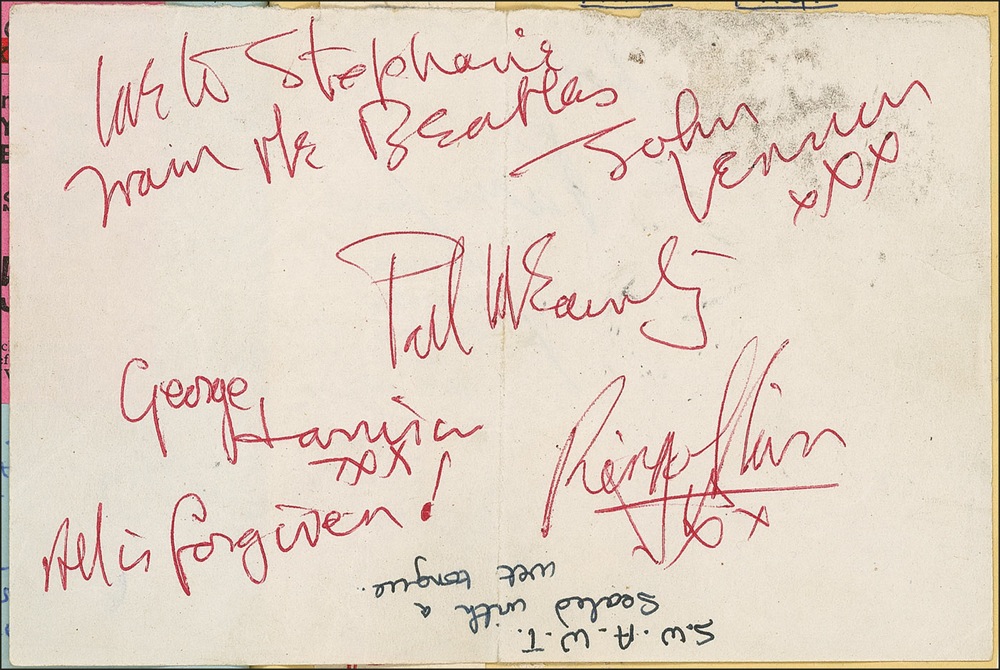 love to Stephanie
from the Beatles
John
Lennon
xxx
Paul McCartney
George
Harrison
xxx
All is forgiven!
Ringo Starr
xxx
S.W.A.W.T.
Sealed with a
wet tongue.